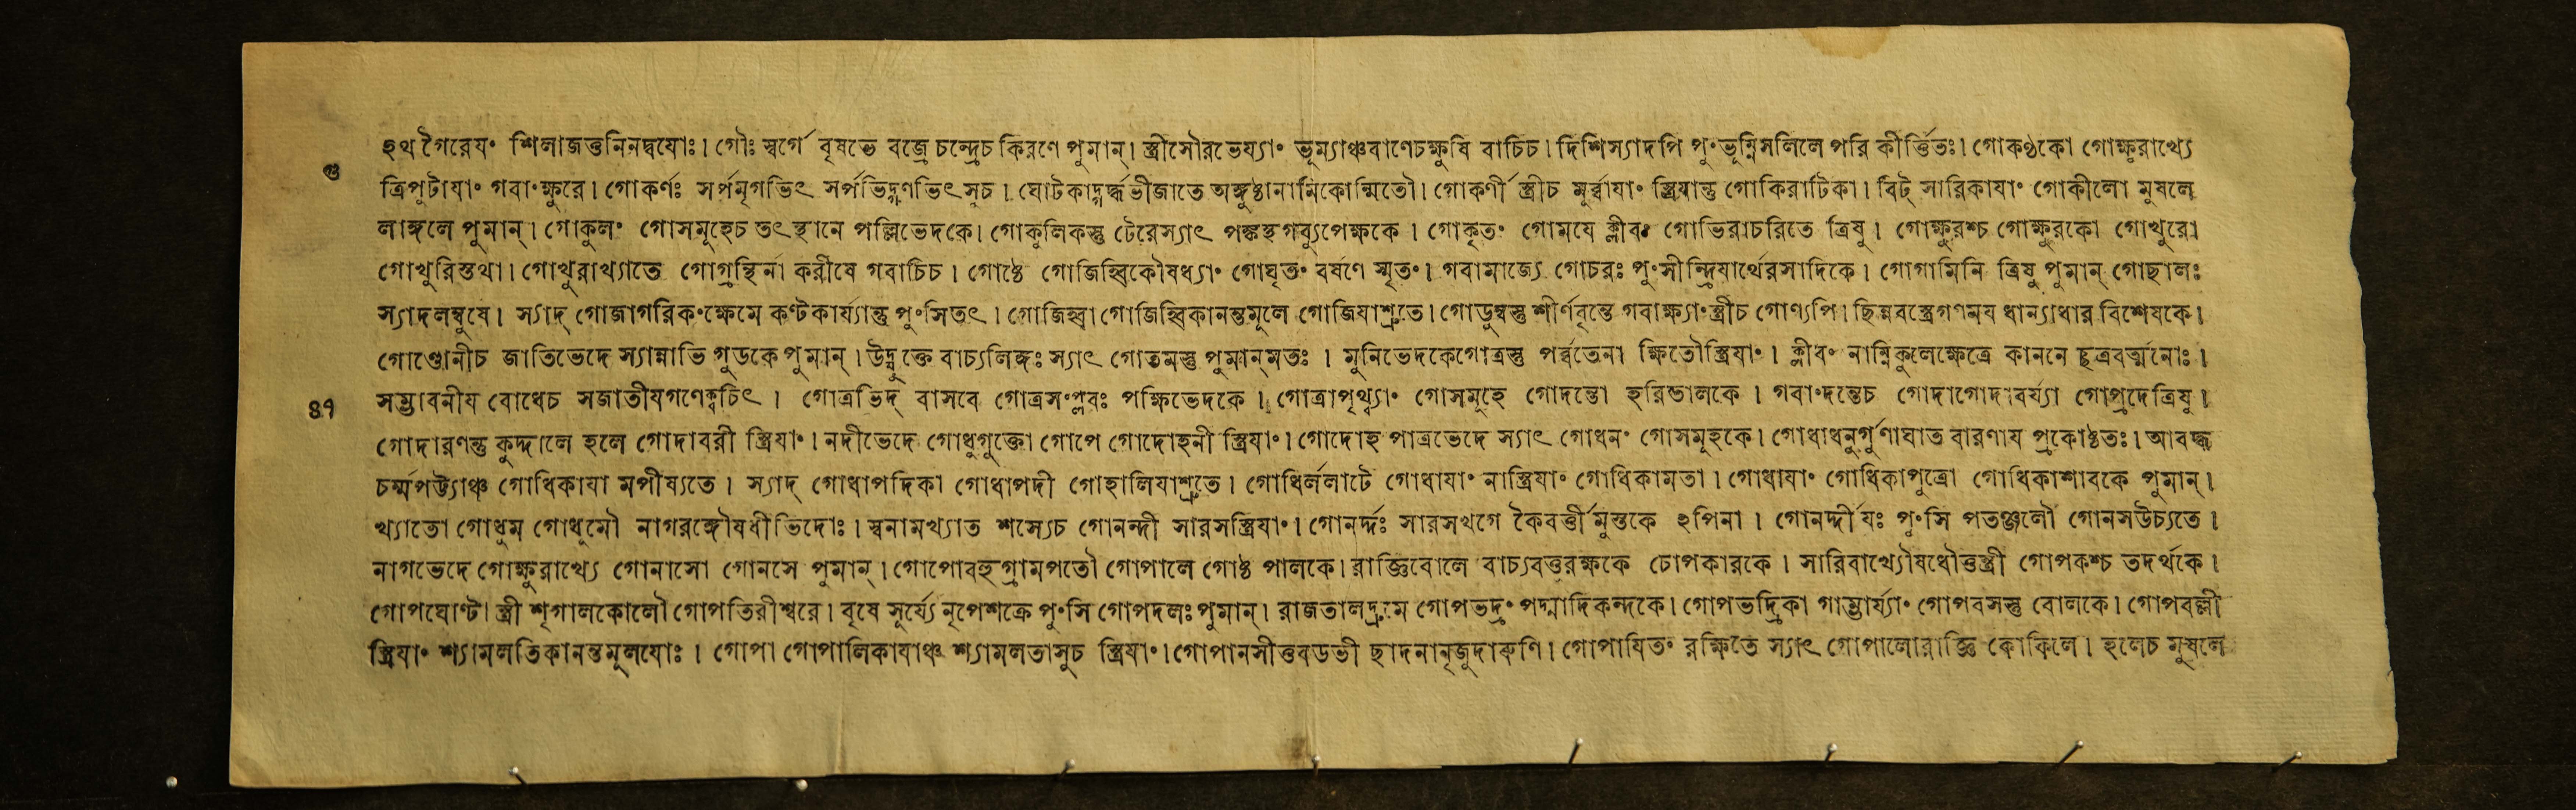 ঽথ গৈরেয়ং শিলাজত্তনিনদ্বযোঃ। গৌঃ স্বর্গে বৃষভে বজ্রে চন্দ্রেচ কিরণে পুমান্। স্ত্রীসৌরভেয্যাং ভূম্যাঞ্চবাণেচক্ষুষি বাচিচ। দিশিস্যাদপি পুংভূম্নিসলিলে পরি কীর্ত্তিতঃ। গোকণ্ঠকো গোক্ষুরাখ্যে
গু
ত্রিপুটাযাং গবাংক্ষুরে। গোকর্ণঃ সর্পমৃগভিৎ সর্পভিদ্গণভিৎসুচ। ঘোটকাদ্গর্দ্ধভীজাতে অঙ্গুষ্ঠানামিকোন্মিতৌ। গোকর্ণী স্ত্রীচ মুর্ব্বাযাং স্ত্রিযান্তু গোকিরাটিকা। বিট্ সারিকাযাং গোকীলো মুষলে
লাঙ্গলে পুমান্। গোকুলং গোসমূহেচ তৎস্থানে পল্লিভেদকে। গোকুলিকস্তু টেরেস্যাৎ পঙ্কস্থগব্যুপেক্ষকে। গোকৃতং গোমযে ক্লীবং গোভিরাচরিতে ত্রিষু। গোক্ষুরশ্চ গোক্ষুরকো গোখুরো
গোখুরিস্তথা। গোখুরাখ্যাতে গোগ্রন্থির্না করীষে গবাচিচ। গোষ্ঠে গোজিহ্বিকৌষধ্যাং গোঘৃতং বর্ষণে স্মৃতং। গবামাজ্যে গোচরঃ পুংসীন্দ্রিযার্থেরসাদিকে। গোগামিনি ত্রিষু পুমান্ গোছালঃ
স্যাদলম্বুষে। স্যাদ্ গোজাগরিকংক্ষেমে কণ্টকার্য্যান্তু পুংসিতৎ। গোজিহ্বা গোজিহ্বিকানন্তমূলে গোজিযাশ্রুতে। গোডুম্বস্তু শীর্ণবৃন্তে গবাক্ষ্যাংস্ত্রীচ গোণ্যপি। ছিন্নবস্ত্রেগণময ধান্যাধার বিশেষকে।
গোণ্ডোনীচ জাতিভেদে স্যান্নাভি গুডকে পুমান্। উদ্বৃক্তে বাচ্যলিঙ্গঃ স্যাৎ গোতমস্তু পুমান্‌মতঃ। মুনিভেদকেগোত্রস্তু পর্ব্বতেনা ক্ষিতৌস্ত্রিযাং। ক্লীবং নাম্নিকুলেক্ষেত্রে কাননে ছত্রবর্ত্মনোঃ।
৪৭
সম্ভাবনীয বোধেচ সজাতীযগণেক্বচিৎ। গোত্রভিদ্ বাসবে গোত্রসংপ্লবঃ পক্ষিভেদকে। গোত্রাপৃথ্ব্যাং গোসমূহে গোদন্তো হরিতালকে। গবাংদন্তেচ গোদাগোদাবর্য্যা গোপ্রদেত্রিষু।
গোদারণন্তু কুদ্দালে হলে গোদাবরী স্ত্রিযাং। নদীভেদে গোধুগুক্তো গোপে গোদোহনী স্ত্রিযাং। গোদোহ পাত্রভেদে স্যাৎ গোধনং গোসমূহকে। গোধাধনুর্গুণাঘাত বারণায প্রকোষ্ঠতঃ। আবদ্ধ
চর্ম্মপট্ট্যাঞ্চ গোধিকাযা মপীষ্যতে। স্যাদ্ গোধাপদিকা গোধাপদী গোহালিযাশ্রুতে। গোধির্ললাটে গোধাযাং নাস্ত্রিযাং গোধিকামতা। গোধাযাং গোধিকাপুত্রো গোধিকাশাবকে পুমান্।
খ্যাতো গোধুম গোধুমৌ নাগরঙ্গৌষধীভিদোঃ। স্বনামখ্যাত শস্যেচ গোনন্দী সারসস্ত্রিযাং। গোনর্দ্দঃ সারসখগে কৈবর্ত্তীমুস্তকে ঽপিনা। গোনর্দ্দীযঃ পুংসি পতঞ্জলৌ গোনসউচ্যতে।
নাগভেদে গোক্ষুরাখ্যে গোনাসো গোনসে পুমান্। গোপোবহুগ্রামপতৌ গোপালে গোষ্ঠ পালকে। রাজ্ঞিবোলে বাচ্যবত্তুরক্ষকে চোপকারকে। সারিবাখ্যৌষধৌত্তস্ত্রী গোপকশ্চ তদর্থকে।
গোপঘোণ্টা স্ত্রী শৃগালকোলৌ গোপতিরীশ্বরে। বৃষে সূর্য্যে নৃপেশক্রে পুংসি গোপদলঃ পুমান্। রাজতালদ্রুমে গোপভদ্রং পদ্মাদিকন্দকে। গোপভদ্রিকা গাম্ভার্য্যাং গোপবসস্তু বোলকে। গোপবল্লী
স্ত্রিযাং শ্যামলতিকানন্তমূলযোঃ। গোপা গোপালিকাযাঞ্চ শ্যামলতাসুচ স্ত্রিযাং। গোপানসীত্তবডভী ছাদনানৃজুদারুণি। গোপাযিতং রক্ষিতে স্যাৎ গোপালোরাজ্ঞি কোকিলে। হলেচ মুষলে